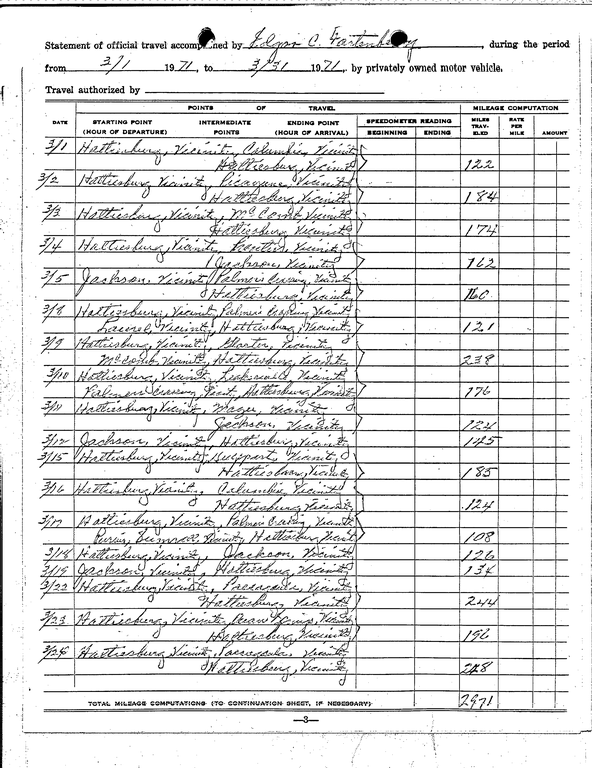 Statement of official travel accomplished by Edgar C. Fortenberry, during the period
from 3/1 1971, to 3/31 1971, by privately owned motor vehicle.
Travel authorized by
POINTS OF TRAVEL MILEAGE COMPUTATION
DATE STARTING POINT (HOUR OF DEPARTURE) INTERMEDIATE POINTS ENDING POINT (HOUR OF ARRIVAL) SPEEDOMETER READING BEGINNING ENDING MILES TRAVELED RATE PER MILE AMOUNT
3/1 Hattiesburg, Vicinity, Columbia, Vicinity
Hattiesburg, Vicinity 122
3/2 Hattiesburg Vicinity, Picayune, Vicinity
Hattiesburg, Vicinity 184
3/3 Hattiesburg, Vicinity, McComb, Vicinity
Hattiesburg, Vicinity 174
3/4 Hattiesburg, Vicinity, Prentiss, Vicinity
Jackson, Vicinity 162
3/5 Jackson, Vicinity, Palmers Crossing, Vicinity
Hattiesburg, Vicinity 160
3/8 Hattiesburg, Vicinity Palmers Crossing Vicinity
Laurel, Vicinity, Hattiesburg, Vicinity 121
3/9 Hattiesburg, Vicinity, Vicinity
McComb, Vicinity, Hattiesburg, Vicinity 238
3/10 Hattiesburg, Vicinity, Leakesville, Vicinity
Palmers Crossing, Hattiesburg, Vicinity 176
3/11 Hattiesburg, Vicinity, Magee, Vicinity
Jackson, Vicinity 124
3/12 Jackson, Vicinity, Hattiesburg, Vicinity 145
3/15 Hattiesburg, Vicinity, Gulfport, Vicinity,
Hattiesburg, Vicinity 185
3/16 Hattiesburg, Vicinity, Columbia, Vicinity
Hattiesburg, Vicinity 124
3/17 Hattiesburg, Vicinity, Palmers Crossing, Vicinity
Purvis, Sumrall, Vicinity, Hattiesburg, Vicinity 108
3/18 Hattiesburg, Vicinity, Jackson, Vicinity 126
3/19 Jackson, Vicinity, Hattiesburg, Vicinity 134
3/22 Hattiesburg, Vicinity, Pascagoula, Vicinity
Hattiesburg, Vicinity 244
3/23 Hattiesburg, Vicinity, Ocean Springs, Vicinity
Hattiesburg, Vicinity 196
Hattiesburg, Vicinity, Pascagoula, Vicinity
Hattiesburg, Vicinity 248
TOTAL MILEAGE COMPUTATIONS (TO CONTINUATION SHEET, IF NECESSARY) 2971
—3—